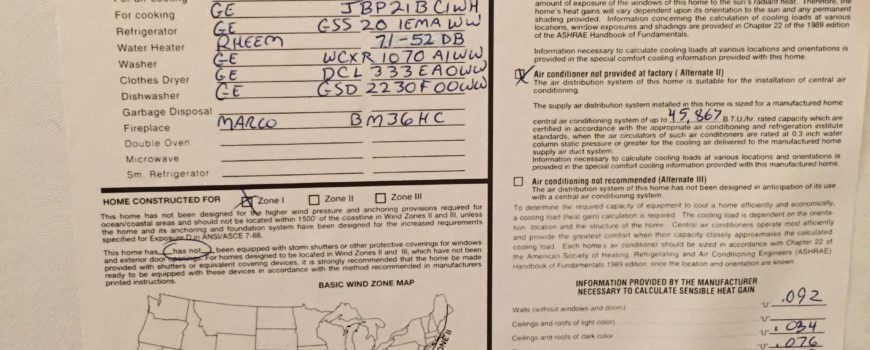 For cooking GE JBP21BC1WH
Refrigerator GE GSS20IEMAWW
Water Heater RHEEM 71-52DB
Washer GE WCXR1070A1WW
Clothes Dryer GE DCL333EA0WW
Dishwasher GE GSD2230F00WW
Garbage Disposal
Fireplace MARCO BM36HC
Double Oven
Microwave
Sm. Refrigerator
HOME CONSTRUCTED FOR Zone I Zone II Zone III
This home has not been designed for the higher wind pressure and anchoring provisions required for
ocean/coastal areas and should not be located within 1500' of the coastline in Wind Zones II and III, unless
the home and its anchoring and foundation system have been designed for the increased requirements
specified for Exposure D in ANSI/ASCE 7-88.
This home has has not been equipped with storm shutters or other protective coverings for windows
and exterior door openings. For homes designed to be located in Wind Zones II and III, which have not been
provided with shutters or equivalent covering devices, it is strongly recommended that the home be made
ready to be equipped with these devices in accordance with the method recommended in manufacturers
printed instructions.
BASIC WIND ZONE MAP
ZONE II
amount of exposure of the windows of this home to the sun's radiant heat. Therefore, the
home's heat gains will vary dependent upon its orientation to the sun and any permanent
shading provided. Information concerning the calculation of cooling loads at various
locations, window exposures and shadings are provided in Chapter 22 of the 1989 edition
of the ASHRAE Handbook of Fundamentals.
Information necessary to calculate cooling loads at various locations and orientations is
provided in the special comfort cooling information provided with this home.
Air conditioner not provided at factory ( Alternate II)
The air distribution system of this home is suitable for the installation of central air
conditioning.
The supply air distribution system installed in this home is sized for a manufactured home
central air conditioning system of up to 45,867 B.T.U./hr. rated capacity which are
certified in accordance with the appropriate air conditioning and refrigeration institute
standards, when the air circulators of such air conditioners are rated at 0.3 inch water
column static pressure or greater for the cooling air delivered to the manufactured home
supply air duct system.
Information necessary to calculate cooling loads at various locations and orientations is
provided in the special comfort cooling information provided with this manufactured home.
Air conditioning not recommended (Alternate III)
The air distribution system of this home has not been designed in anticipation of its use
with a central air conditioning system.
To determine the required capacity of equipment to cool a home efficiently and economically,
a cooling load (heat gain) calculation is required. The cooling load is dependent on the orienta-
tion, location and the structure of the home. Central air conditioners operate most efficiently
and provide the greatest comfort when their capacity closely approximates the calculated
cooling load. Each home's air conditioner should be sized in accordance with Chapter 22 of
the American Society of Heating, Refrigerating and Air Conditioning Engineers (ASHRAE)
Handbook of Fundamentals 1989 edition, once the location and orientation are known.
INFORMATION PROVIDED BY THE MANUFACTURER
NECESSARY TO CALCULATE SENSIBLE HEAT GAIN
Walls (without windows and doors) "U" .092
Ceilings and roofs of light color "U" .034
Ceilings and roofs of dark color "U" .076